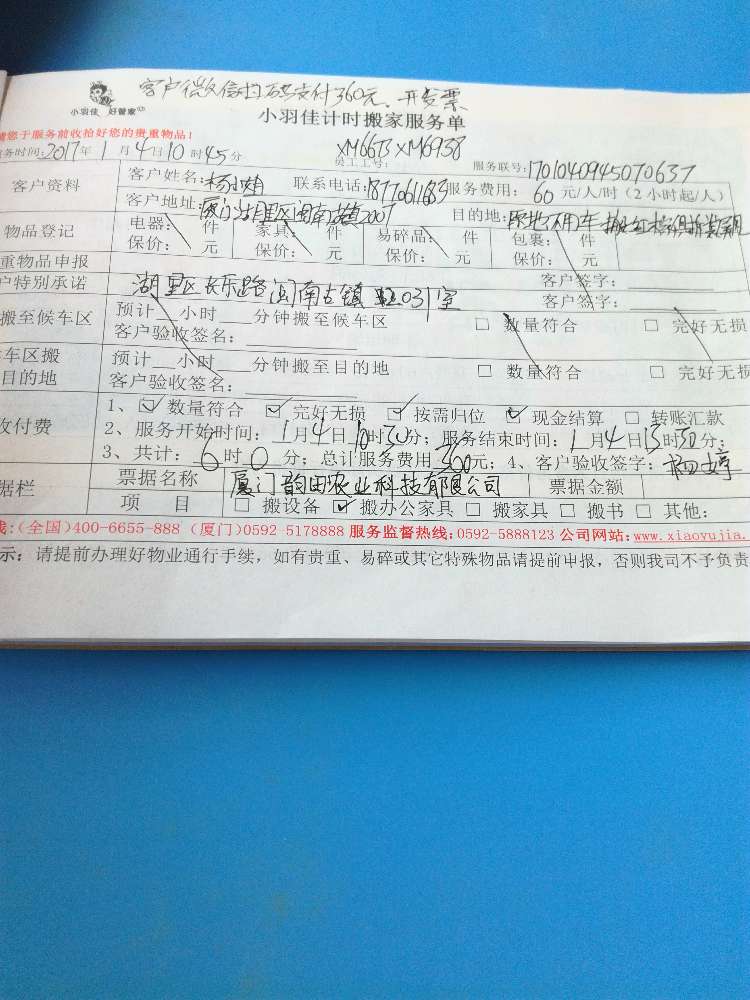 客户微信扫码支付360元、开发票
小羽佳 好管家
小羽佳计时搬家服务单
您于服务前收拾好您的贵重物品!
务时间:2017年1月4日10时45分 XM6673 XM6938
员工工号: 服务联号:1701040945070637
客户资料 客户姓名: 联系电话:18770611683 服务费用:60元/人/时(2小时起/人)
客户地址:厦门湖里区闽南古镇2007 目的地:原地不用车
物品登记 电器: 件 家具: 件 易碎品: 件 包裹: 件
保价: 元 保价: 元 保价: 元 保价: 元
重物品申报 客户签字:
户特别承诺 湖里区长乐路闽南古镇 031室 客户签字:
搬至候车区 预计__小时____分钟搬至候车区 □ 数量符合 □ 完好无损
客户验收签名:
车区搬 预计__小时____分钟搬至目的地 □ 数量符合 □ 完好无损
目的地 客户验收签名:
收付费 1、☑ 数量符合 ☑ 完好无损 ☑ 按需归位 ☑ 现金结算 □ 转账汇款
2、服务开始时间:1月4日10时30分;服务结束时间:1月4日13时30分;
3、共计:6时0分;总计服务费用360元;4、客户验收签字:杨婷
据栏 票据名称 厦门韵田农业科技有限公司 票据金额
项 目 □ 搬设备 ☑ 搬办公家具 □ 搬家具 □ 搬书 □ 其他:
线:(全国)400-6655-888 (厦门)0592-5178888 服务监督热线:0592-5888123 公司网站:www.xiaoyujia.
示:请提前办理好物业通行手续,如有贵重、易碎或其它特殊物品请提前申报,否则我司不予负责